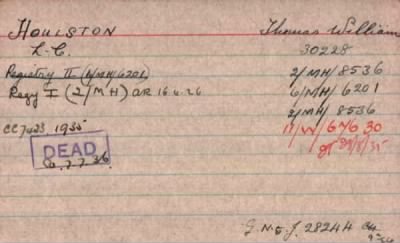 HOULSTON Thomas William
L-C. 30228
Registry II (6/MH/6201) 2/MH/8536
Regy I (2/MH) OR 16.6.26 6/MH/6201
2/MH/8536
CC7423 1935 11/W/646 30
DEAD 29/8/35
7.7.36
G.M.&J. 28244